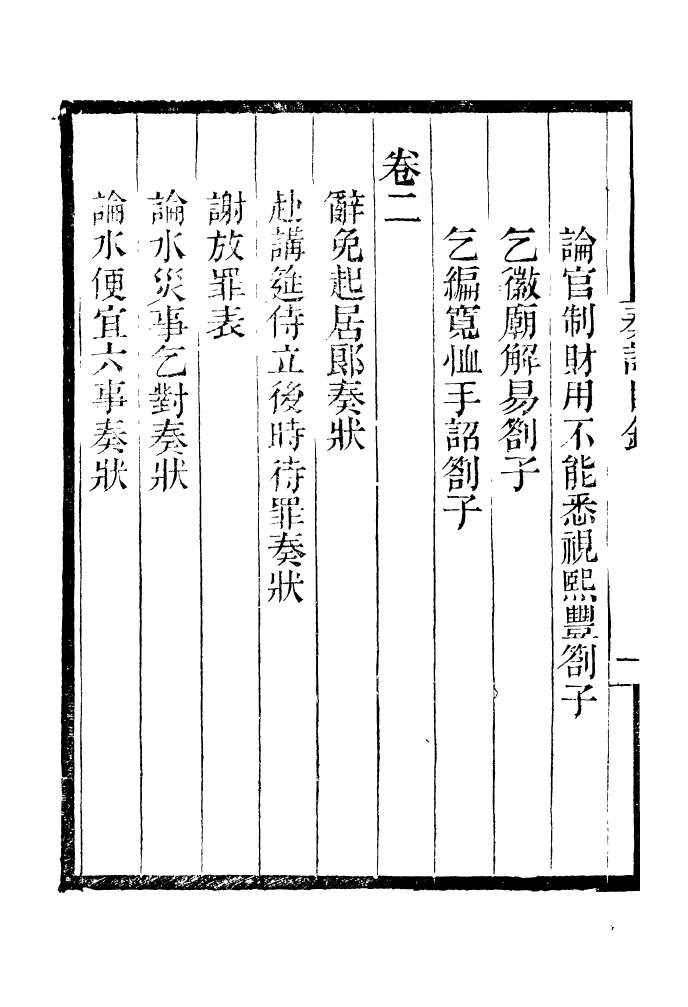 奏議目錄
一
論官制財用不能悉視熙豐劄子
乞徽廟解易劄子
乞編寬恤手詔劄子
卷二
辭免起居郎奏狀
赴講筵侍立後時待罪奏狀
謝放罪表
論水災事乞對奏狀
論水便宜六事奏狀